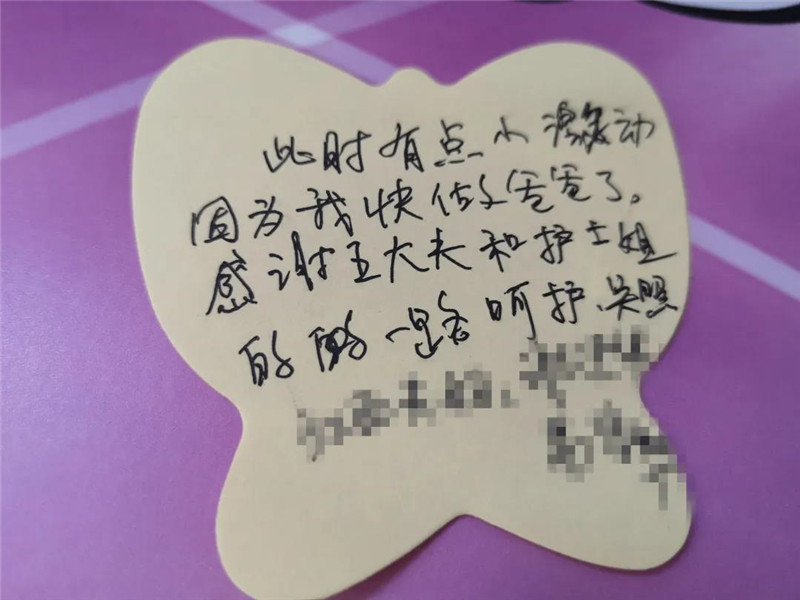 此时有点小激动
因为我快做爸爸了。
感谢王大夫和护士姐
的一路呵护、关照